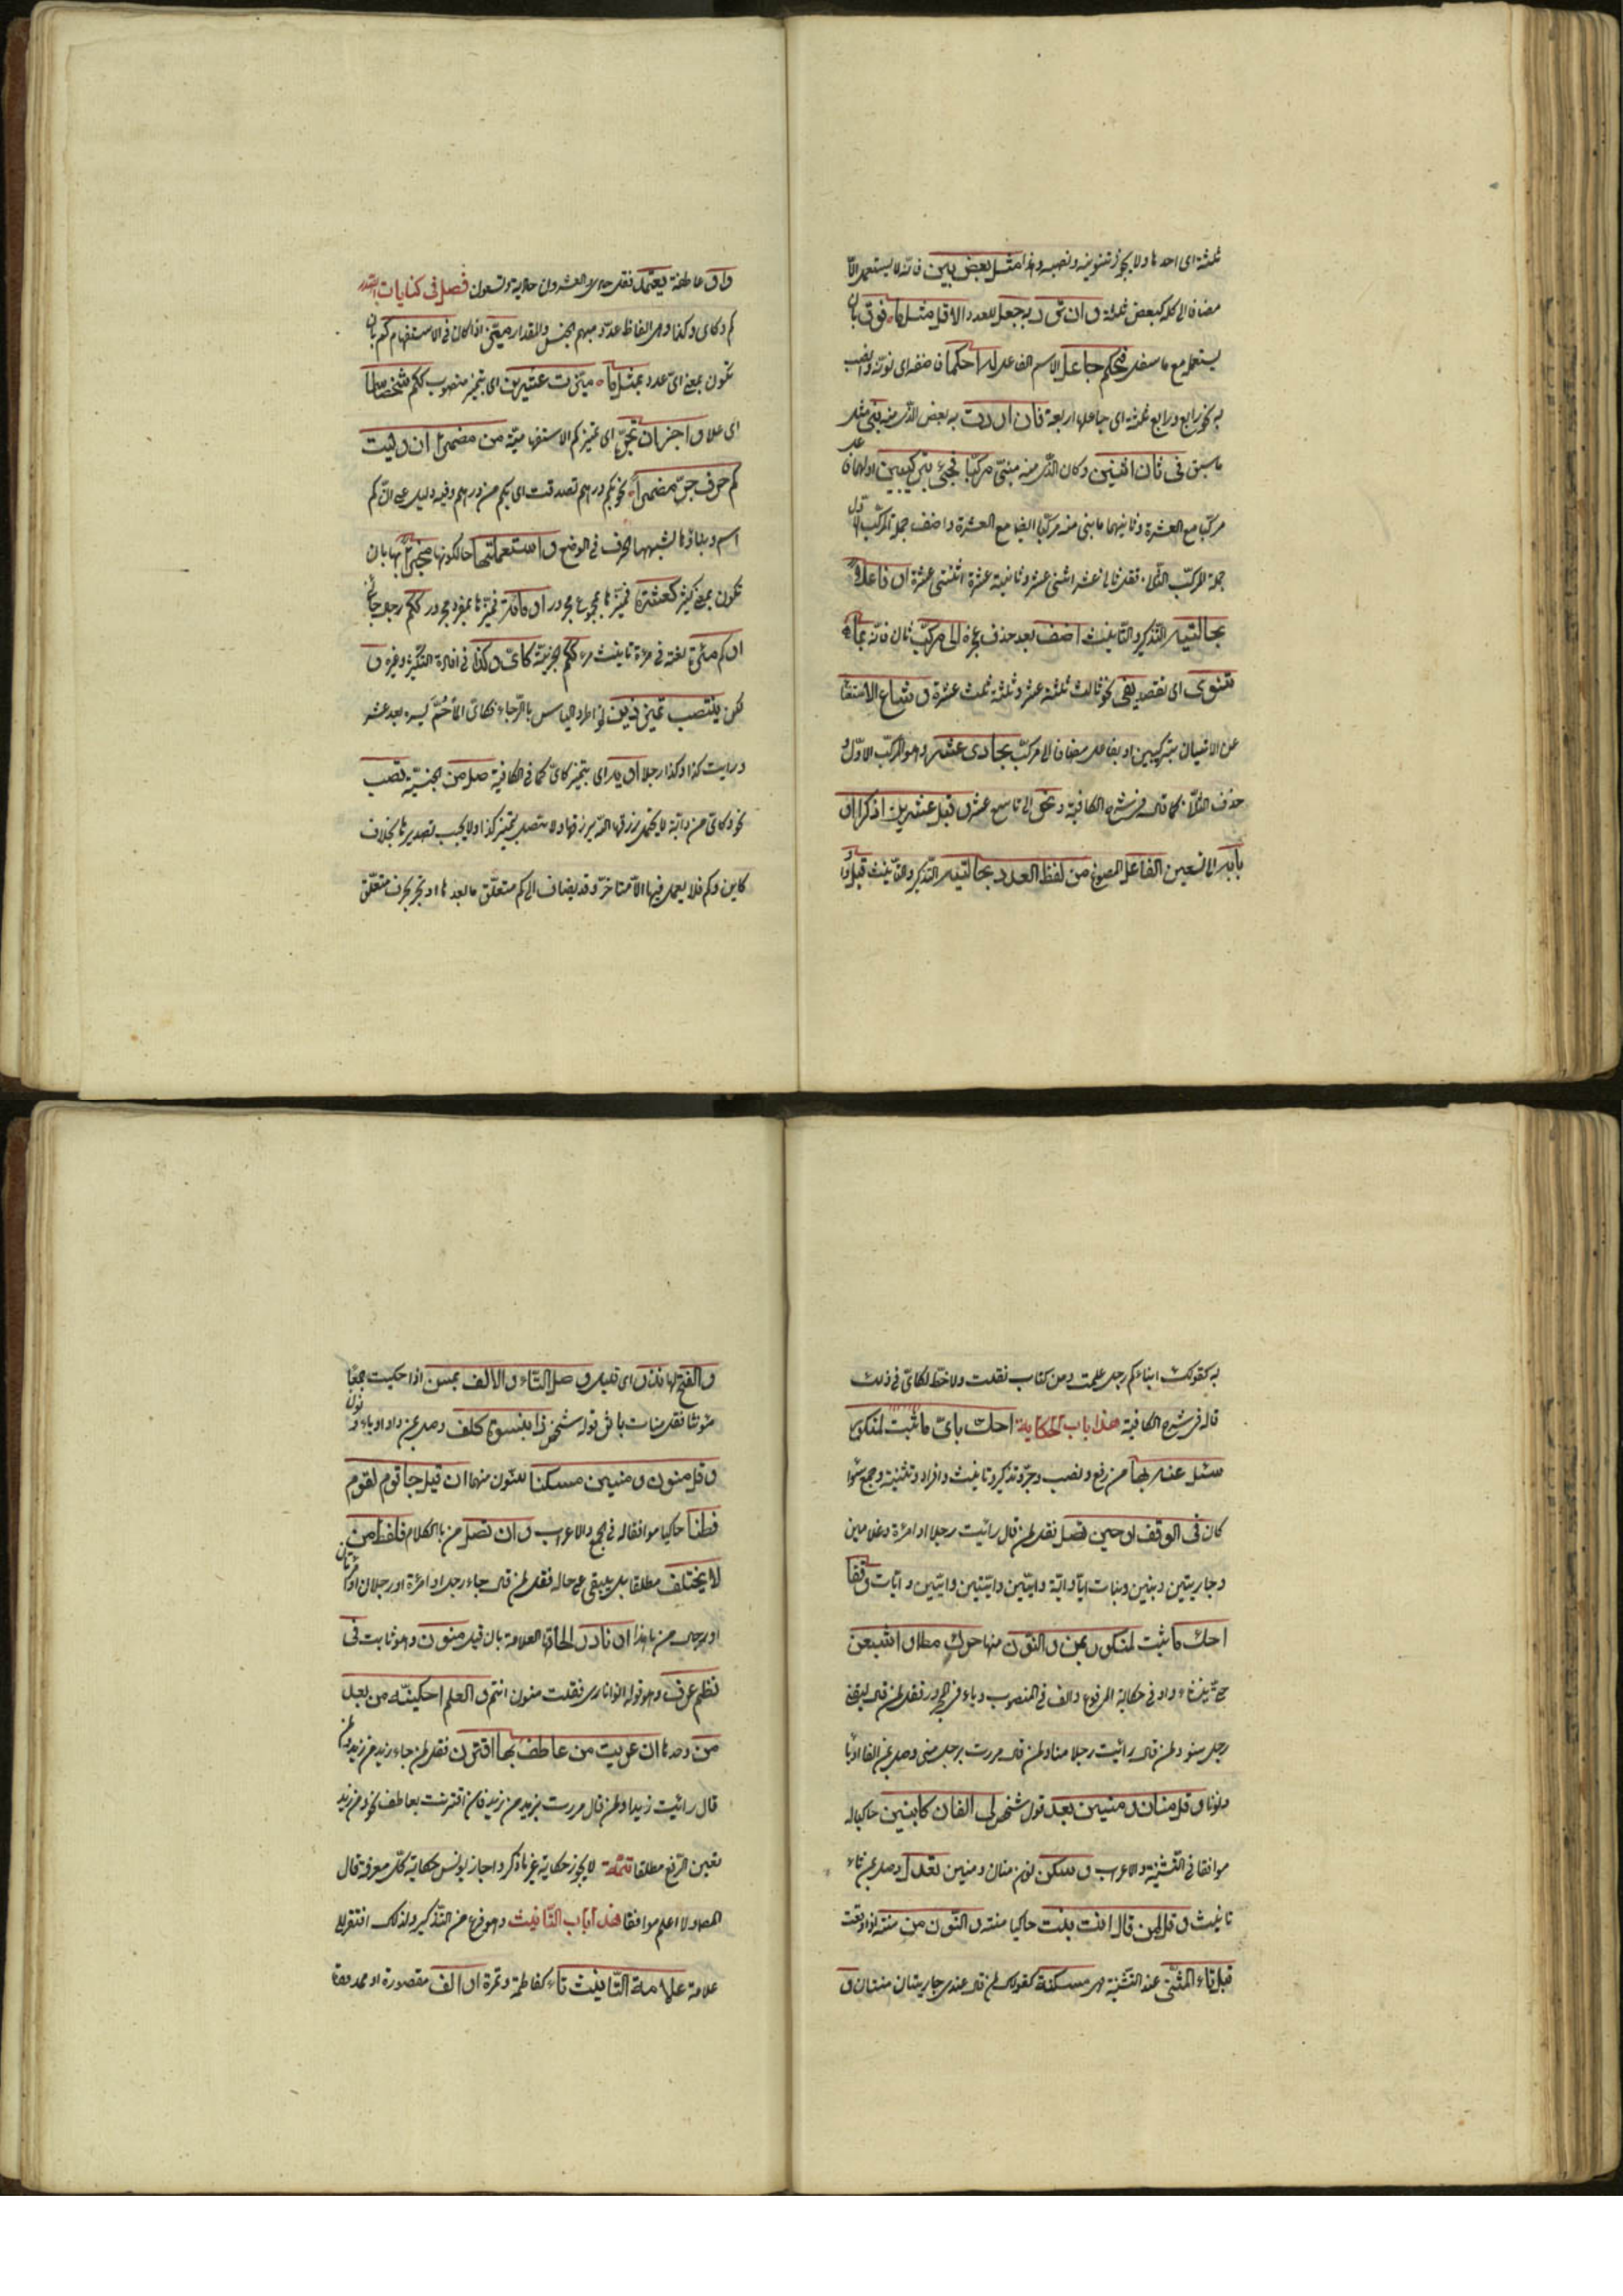 ثلثة اى احدها ولا يجوز تنوينه ونصبه وهذا مثل بعض بين فانه لا يستعمل الّا
مضافا الى كله كبعض ثلثة وان ترد به جعل للعدد الاقل مثل ما فوق بان
يستعمل مع ما سفل فحكم جاعل الاسم الفاعل له احكما فاضفه اى نوّنه وانصب
به نحو رابع ورابع ثلثة اى جاعلها اربعة فان اردت به بعض الذى منه بنى مثل
ما سبق فى ثان اثنين وكان الذى منه مبنى مركّبا فجئ بتركيبين اولهما فاعل
مركّبا مع العشرة وثانيهما ما بنى منه مركّبا ايضا مع العشرة واضف جملة المركّب الاول
جملة المركّب الثانى فقل ثانى عشر اثنى عشر وثانية عشرة اثنتى عشرة او فاعلا
بحالتيه التذكير والتانيث اضف بعد حذف عجزه الى مركّب ثان فانه بما
تنوى اى تقصد يفى نحو ثالث ثلثة عشر وثالثة ثلث عشرة وشاع الاستغنا
عن الاتيان بتركيبين او بفاعل مضافا الى مركّب بحادى عشر وهو المركّب الاوّل و
حذف الثانى كما قال فى شرح الكافية ونحوه الى تاسع عشر وقبل عشرين اذكرا و
بابه الى تسعين الفاعل المصوغ من لفظ العدد بحالتيه التذكير والتانيث قبل واو
واو عاطفة يعتمد فقل حادى والعشرون حادية وتسعون فصل فى كنايات العدد
كم وكاى وكذا وهى الفاظ عدد مبهم الجنس والمقدار ميّز اذا كان فى الاستفهام كم بان
تكون بمعنى اىّ عدد بمثل ما ميّزت عشرين اى بتمييز منصوب ككم شخصا سما
اى علا واجز ان تجرّه اى تمييز كم الاستفهامية من مضمرا ان وليت
كم حرف جرّ مضمرا نحو بكم درهم تصدقت اى بكم من درهم وفيه دليل على انّ كم
اسم وبناؤها لشبهها الحرف فى الوضع واستعملنها حالكونها مخبرا بها بان
تكون بمعنى كثير كعشرة فميّزها بمجموع مجرور او مائة فميّزها بمفرد مجرور ككم رجال جاؤنى
او كم مرة لغة فى مرأة تانيث مرء ككم الخبرية كاىّ وكذا فى افادة التكثير وغيره و
لكن ينتصب تمييز ذين نحو اطرد الياس بالرجاء فكائن آلما حُمّ يسره بعد عسر
ورايت كذا وكذا رجلا او به اى بتمييز كاىّ كما فى الكافية صل من الجنسيّة تصب
نحو وكاىّ من دابة لا تحمل رزقها الله يرزقها ولا تتصل بتمييز كذا ولا يجب تصديرها بخلاف
كاين وكم فلا يعمل فيها الّا متاخر وقد يضاف الى كم متعلق ما بعدها او تجر بحرف متعلق
به كقولك ابناء كم رجل علمت ومن كم كتاب نقلت ولا حظ لكاىّ فى ذلك
قاله فى شرح الكافية هذا باب الحكاية احك باىّ ما ثبت لمنكور
سئل عنه بها من رفع ونصب وجرّ وتذكير وتانيث وافراد وتثنية وجمع سوا
كان فى الوقف او حين تصل فقل لمن قال رايت رجلا او امرأة وغلامين
وجاريتين وبنين وبنات ايّا وايّة وايّين وايّتين وايّين وايّات ووقفا
احك ما ثبت لمنكور بمن والنون منها حرك مطلقا واشبعن
حتى ينشاء واو فى حكاية المرفوع والف فى المنصوب وياء فى المجرور فقل لمن قال لقينى
رجل منو ولمن قال رايت رجلا منا ولمن قال مررت برجل منى وصل بمن الفا اويا
ونونا وقل منان ومنين بعد قول شخص لى الفان كابنين حاكيا له
موافقا فى التثنية والاعراب وسكن نون منان ومنين تعدل وصل بمن تاء
تانيث وقل لمن قال اتت بنت حاكيا منه والنون من منة اذا وقعت
قبل تاء المثنى عند التثنية هى مسكنة كقولك لمن قال عندى جاريتان منتان و
والفتح لها نزر اى قليل وصل التاء والالف بمن اذا حكيت جمعا
مؤنثا فقل منات باثر قول شخص ذا بنسوة كلف وصل بمن واو او ياء و نون
وقل منون ومنين مسكنا للنون منهما ان قيل جا قوم لقوم
فطنا حاكيا موافقا له فى الجمع والاعراب وان تصل من بالكلام فلفظ من
لا يختلف مطلقا بل يبقى على حاله فقل لمن قال جاء رجل او امرأة او رجلان او امرأتان
او رجال من يا هذا او نادر الحاقها العلامة بان قيل منون وهو ثابت فى
نظم عرف وهو قوله اتوا نارى فقلت منون انتم والعلم احكينّه من بعد
من وحدها ان عريت من عاطف بها اقترن فقل لمن جاء زيد من زيد ولمن
قال رايت زيدا ولمن قال مررت بزيد من زيد فان اقترنت بعاطف نحو ومن زيد
تعين الرفع مطلقا تتمة لا يجوز حكاية غير ما ذكر واجاز يونس حكاية كلّ معرفة قال
المصـ ولا اعلم موافقا هذا باب التانيث وهو فرع من التذكير ولذلك افتقر الى
علامة علامة التانيث تاء كفاطمة وتمرة او الف مقصورة او ممدودة